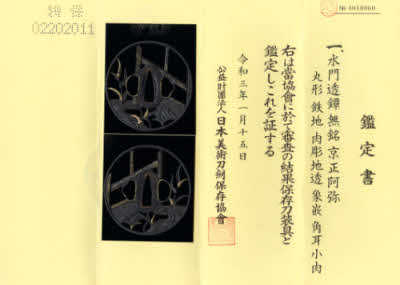 鑑定書
一、水門透鐔 無銘 京正阿弥
丸形 鉄地 肉彫地透 象嵌 角耳小肉
右は當協會に於て審査の結果保存刀装具と
鑑定しこれを証する
令和三年一月十五日
公益財團法人 日本美術刀剣保存協會
02202011
№ 4018060